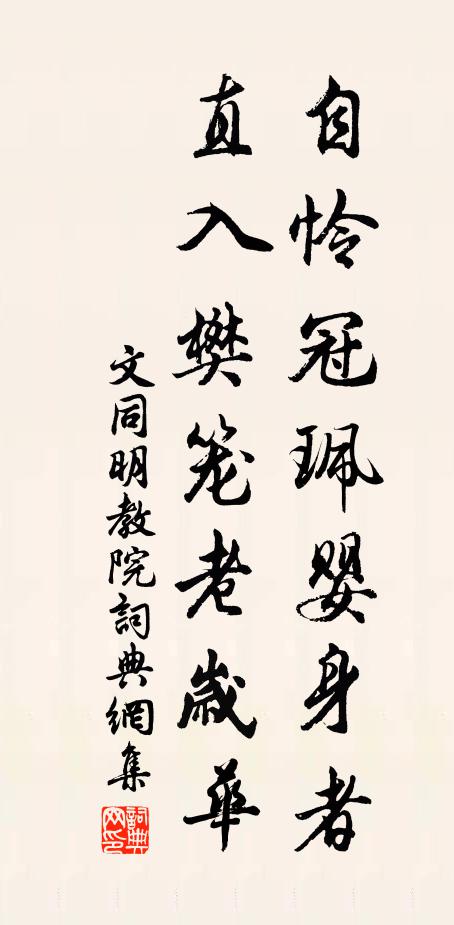 自怜冠珮婴身者
直入樊笼老歲華
文同明教院詞典網集
詞典网印